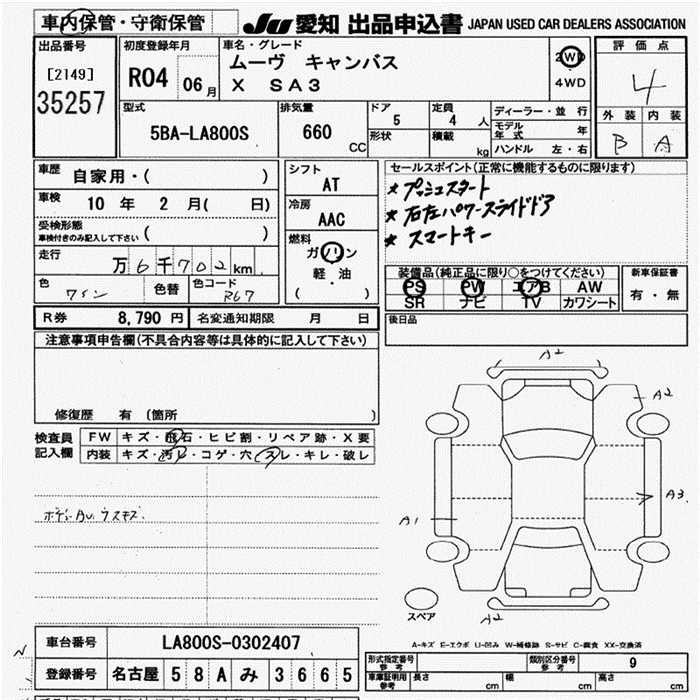 車内保管・守衛保管
JU 愛知 出品申込書 JAPAN USED CAR DEALERS ASSOCIATION
出品番号
[2149]
35257
初度登録年月
R04 06月
車名・グレード
ムーヴ キャンバス
X SA3
2WD
4WD
評価点
4
外装 内装
B A
型式
5BA-LA800S
排気量
660 CC
ドア
5
形状
定員
4 人
積載
kg
ディーラー・並行
モデル年式 年
ハンドル 左・右
車歴
自家用・( )
車検
10 年 2 月( 日)
受検形態
車検付きのみ記入して下さい ( )
走行
万 6 千 702 km
色
ワイン
色替
色コード
R67
シフト
AT
冷房
AAC
燃料
ガソリン
軽・油
( )
セールスポイント(正常に機能するものに限ります)
★ プッシュスタート
★ 右左パワースライドドア
★ スマートキー
装備品(純正品に限り○をつけてください)
PS PW エアB AW
SR ナビ TV カワシート
新車保証書
有・無
後日品
R券 8,790 円 名変通知期限 月 日
注意事項申告欄(不具合内容等は具体的に記入して下さい)
修復歴 有 (箇所 )
検査員記入欄
FW キズ・飛石・ヒビ割・リペア跡・X要
内装 キズ・汚レ・コゲ・穴・スレ・キレ・破レ
ボディAu. ウスキズ.
A2
A2
A3
A1
A2
スペア
A-キズ E-エクボ U-凹み W-補修跡 S-サビ C-腐食 XX-交換済
車台番号 LA800S-0302407
登録番号 名古屋 58A み 3665
N
形式指定番号 参考
類別区分番号 参考 9
車庫証明用 参考 長さ cm 幅 cm 高さ cm